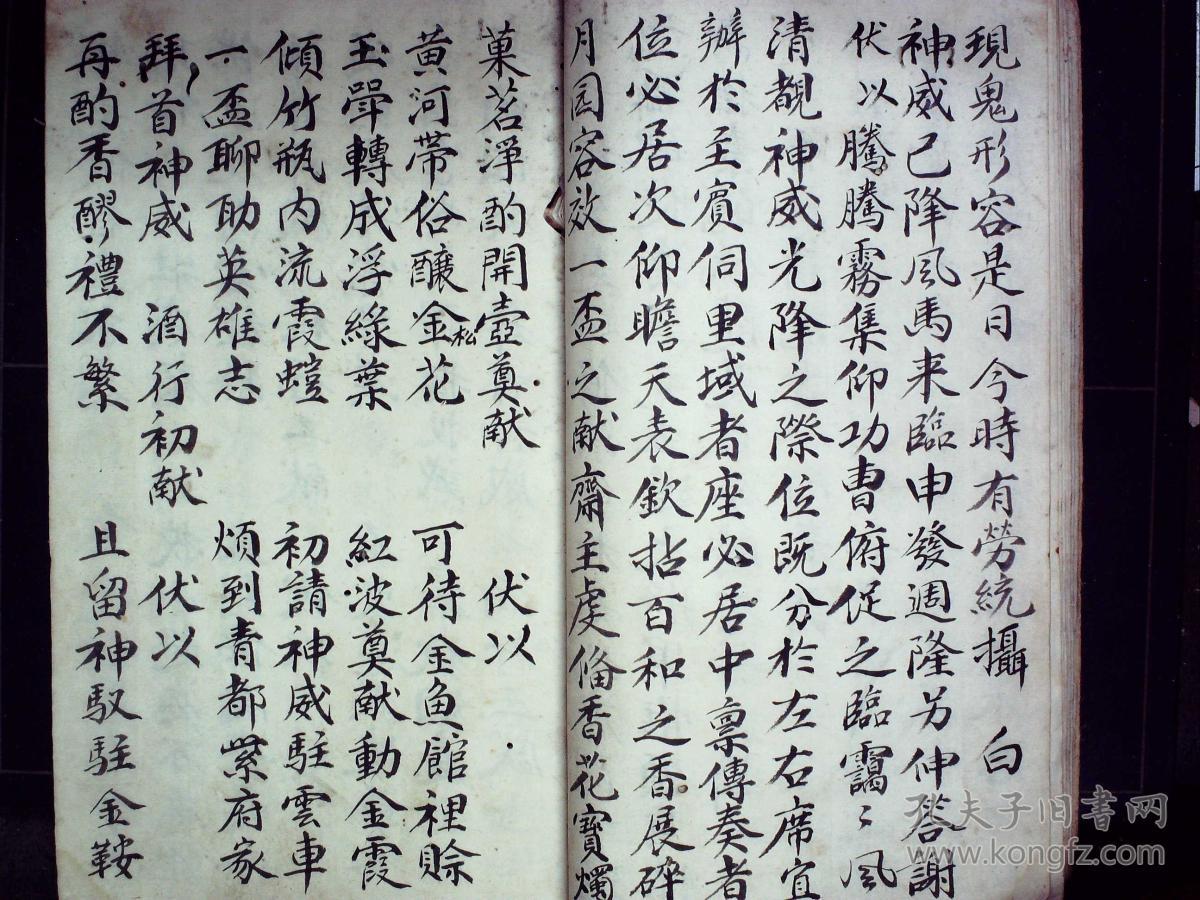 現鬼形容是日今時有勞統攝　白
神威已降風馬来臨申發週隆另伸答謝
伏以騰騰霧集仰功曹俯促之臨靄〻風
清覩神威光降之際位既分於左右席宜
辦於主賓伺里域者座必居中禀傳奏者
位必居次仰瞻天表欽拈百和之香展碎
月园容效一盃之献齋主虔偹香花寶燭
菓茗淨酌開壺奠献　伏以
黄河帶俗釀金松花　可待金魚館裡賒
玉斝轉成浮綠葉　紅波奠献動金霞
傾竹瓶内流霞螘　初請神威駐雲車
一盃聊助英雄志　煩到青都紫府家
拜首神威　酒行初献　伏以
再酌香醪禮不繁　且留神馭駐金鞍
孔夫子旧书网
www.kongfz.com